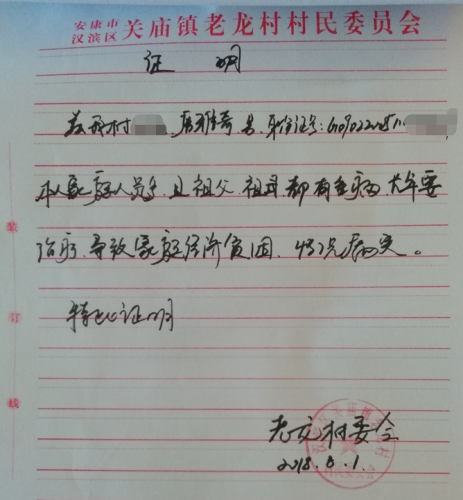 安康市
汉滨区 关庙镇老龙村村民委员会
证 明
兹我村 男,身份证号:
本人家庭人员多,且祖父、祖母都有重病,大年要
治疗,导致家庭经济贫困,情况属实。
特此证明
装
订
线
老龙村委会
2018.8.1